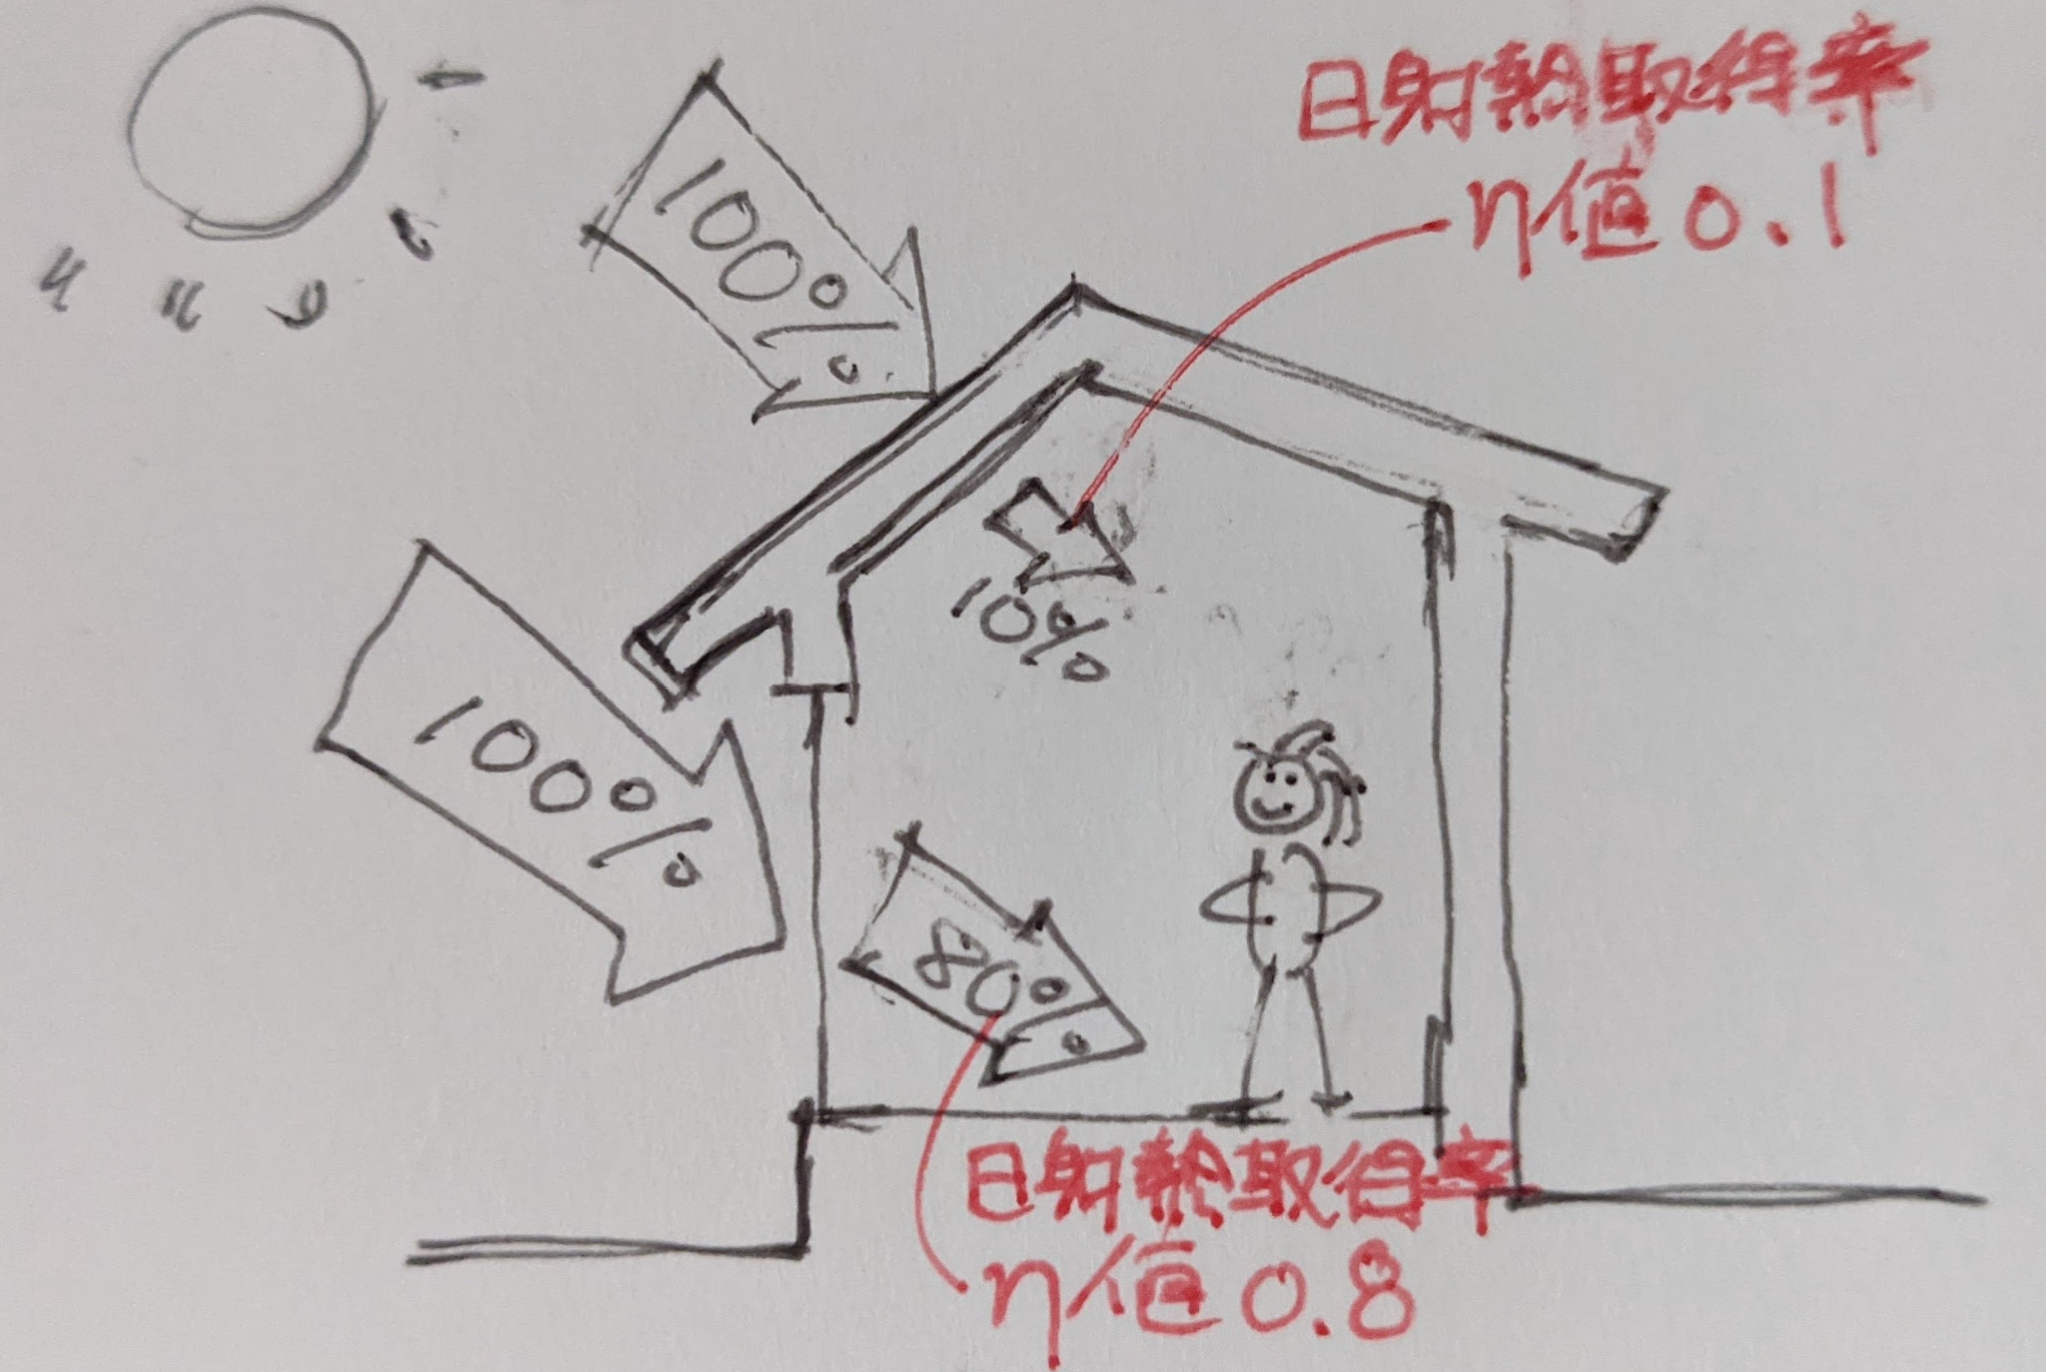 日射熱取得率
η値0.1
100%
10%
100%
80%
日射熱取得率
η値0.8